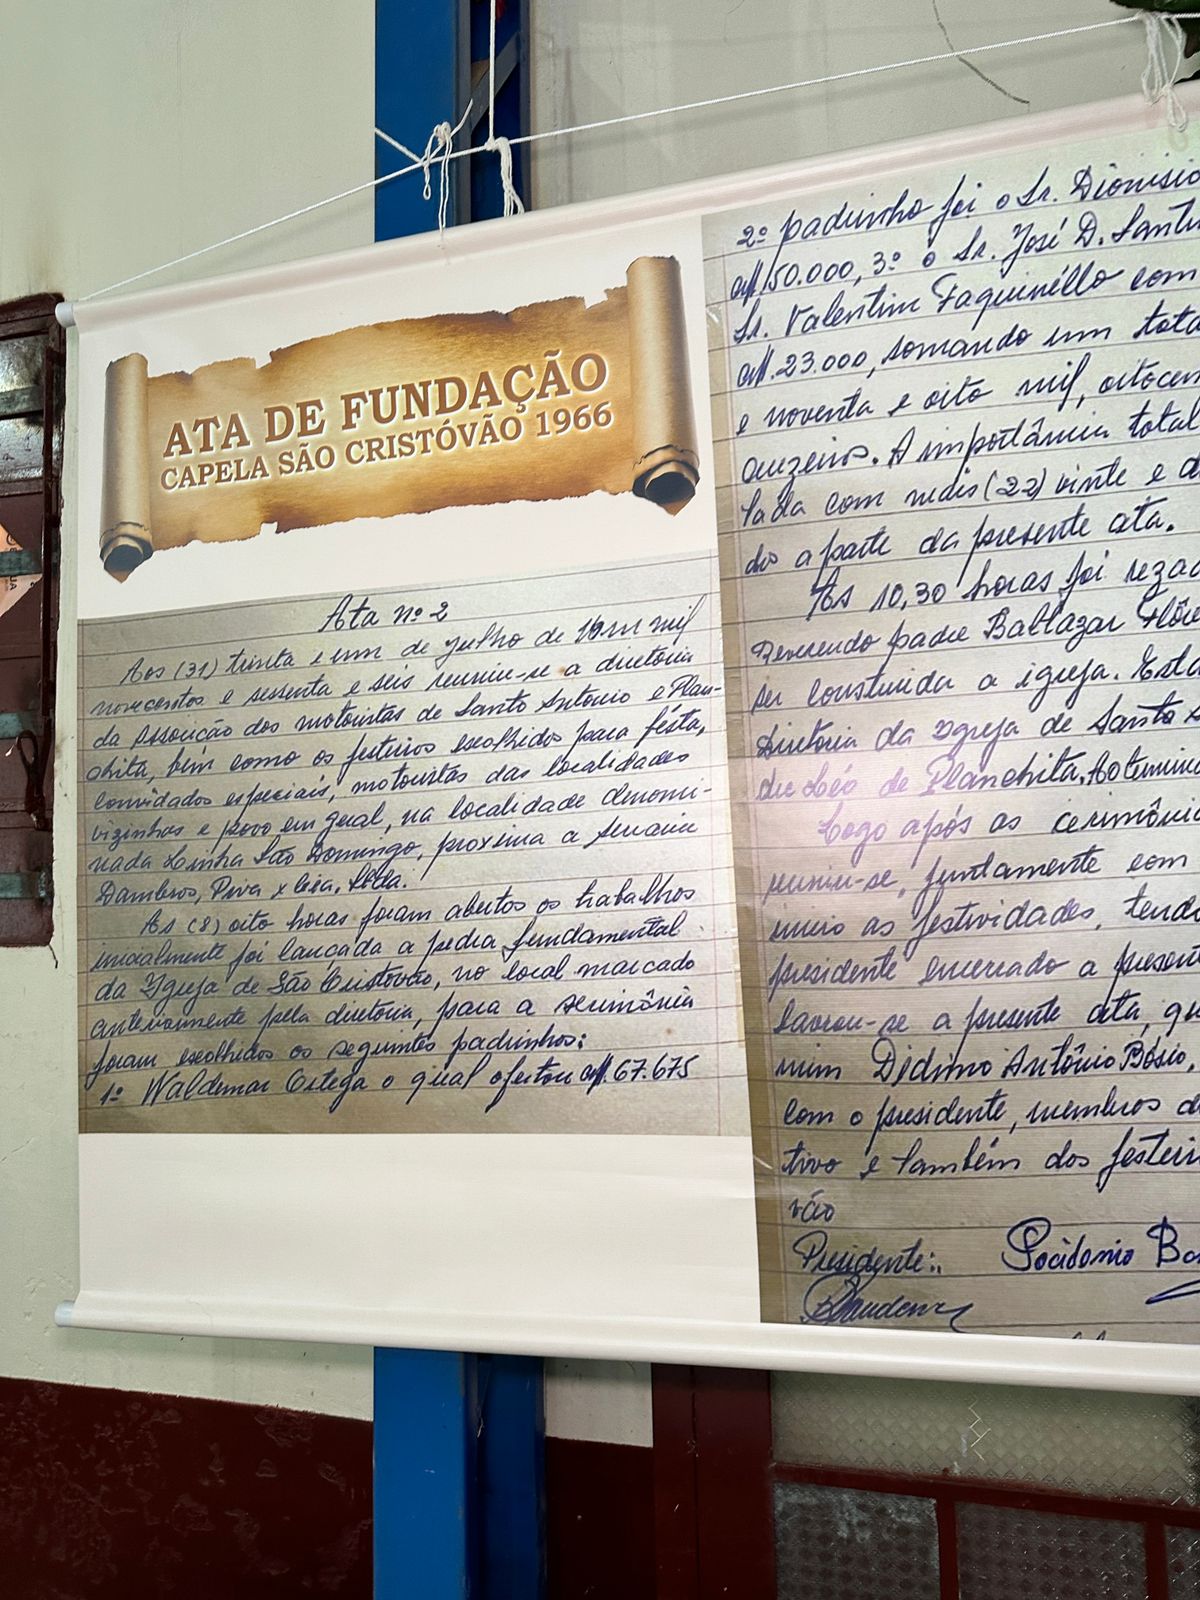 ATA DE FUNDAÇÃO
CAPELA SÃO CRISTÓVÃO 1966
Ata nº 2
Aos (31) trinta e um de julho de Hum mil
novecentos e sessenta e seis reuniu-se a diretoria
da Assoução dos motoristas de Santo Antonio e Plan-
chita, bem como os festeiros escolhidos para fésta,
convidados especiais, motoustas das localidades
vizinhas e povo em geral, na localidade denomi-
nada Linha São Domingo, proxima a Serraria
Dambros, Piva x Ltda.
As (8) oito horas foram abertos os trabalhos
inicialmente foi lançada a pedra fundamental
da Igreja de São Cristovão, no local marcado
anteriormente pela diretoria, para a serimônia
foram escolhidos os seguintes padrinhos:
1º Waldemar Ortega o qual ofertou 67.675
2º padrinho foi o Sr. Dionisio
150.000, 3º o Sr. José D. Santi
Sr. Valentim Faquinéllo com
23.000, somando um tota
e noventa e oito mil, oitocen
cruzeiros. A importância total
lada com mais (22) vinte e d
do a parte da presente ata.
As 10,30 horas foi rezad
Reverendo padre Baltazar Flôre
ser construida a igreja. Esta
Diretoria da Igreja de Santo
de Planchita. Ao termina
Logo após as cerimônia
reuniu-se, juntamente com
inicio as festividades, tendo
presidente encerrado a present
lavrou-se a presente ata, que
mim Didimo Antônio Bósio,
com o presidente, membros d
tivo e também dos festeir
vão
Presidente:. Pocidonio Bo